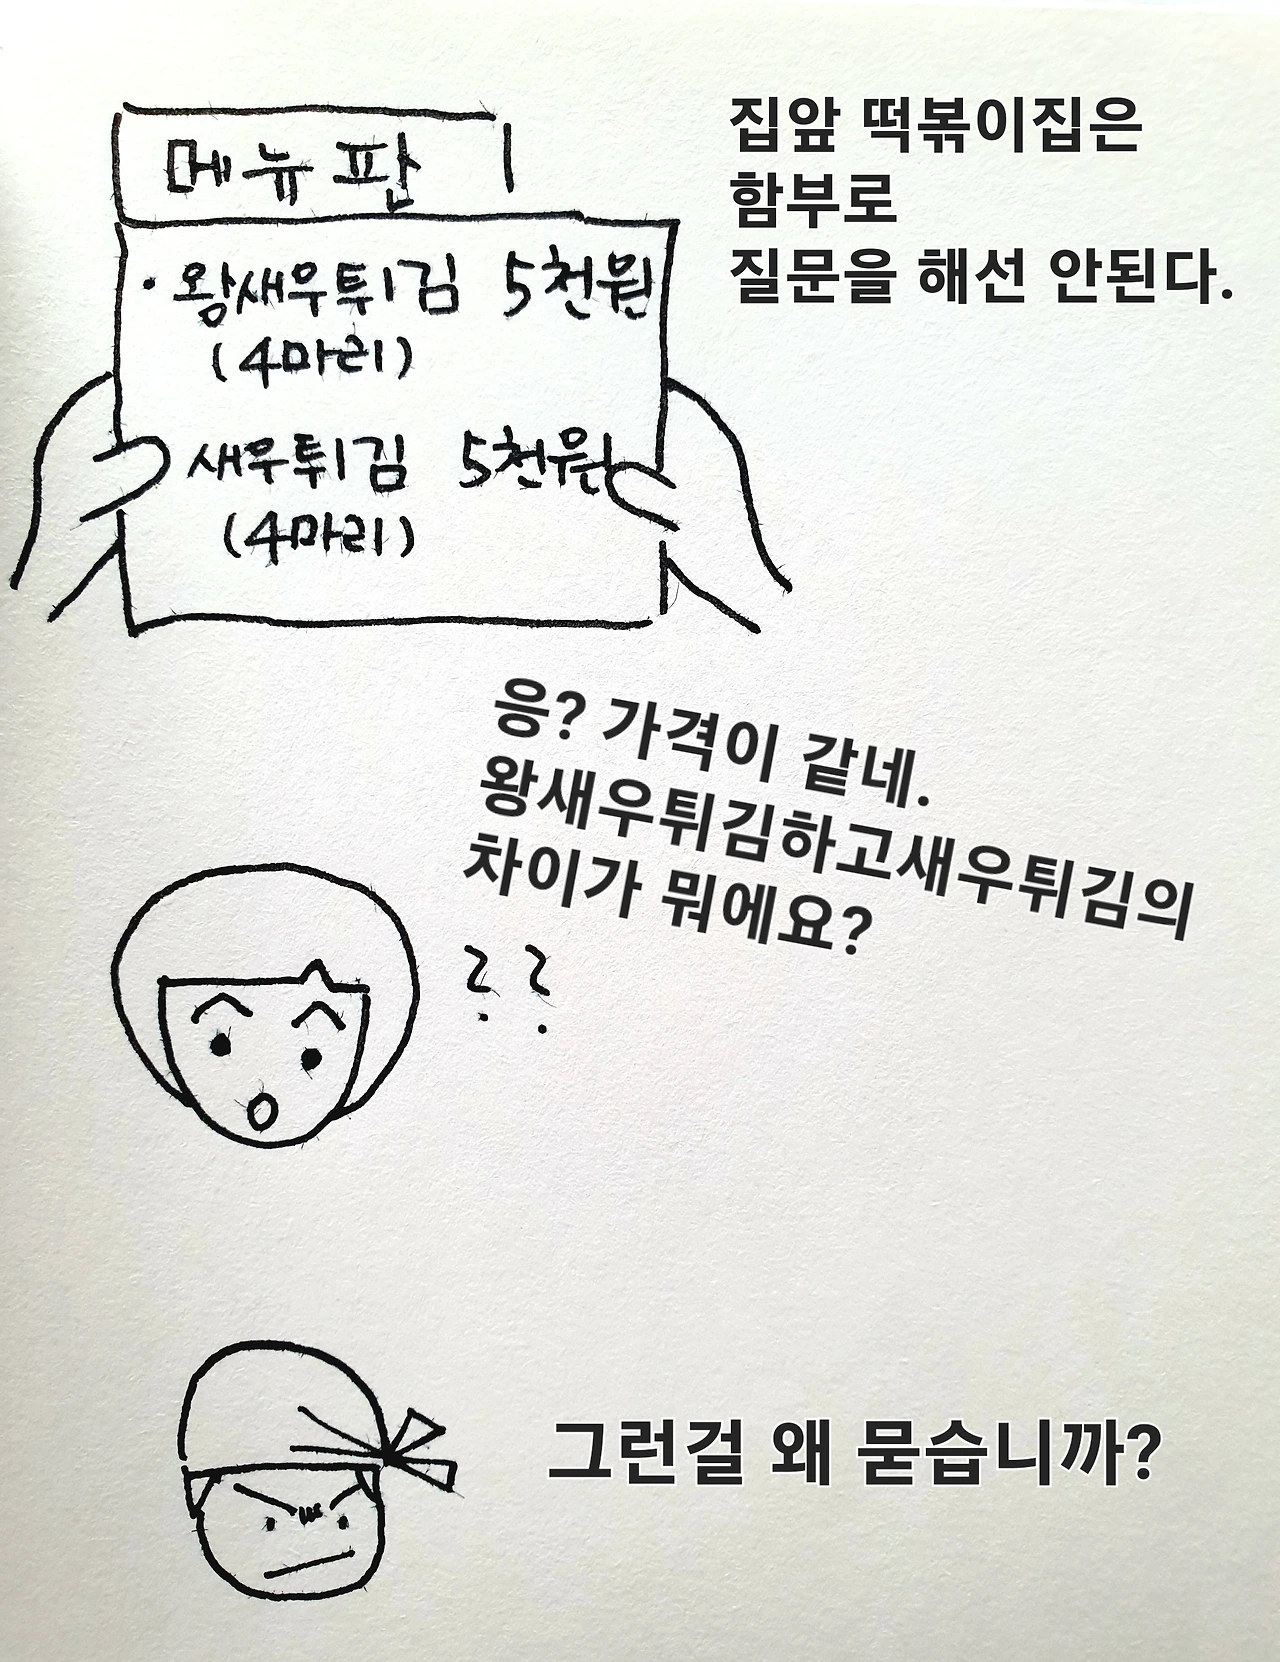 메뉴판
집앞 떡볶이집은
함부로
질문을 해선 안된다.
· 왕새우튀김 5천원
(4마리)
새우튀김 5천원
(4마리)
응? 가격이 같네.
왕새우튀김하고새우튀김의
차이가 뭐에요?
??
그런걸 왜 묻습니까?